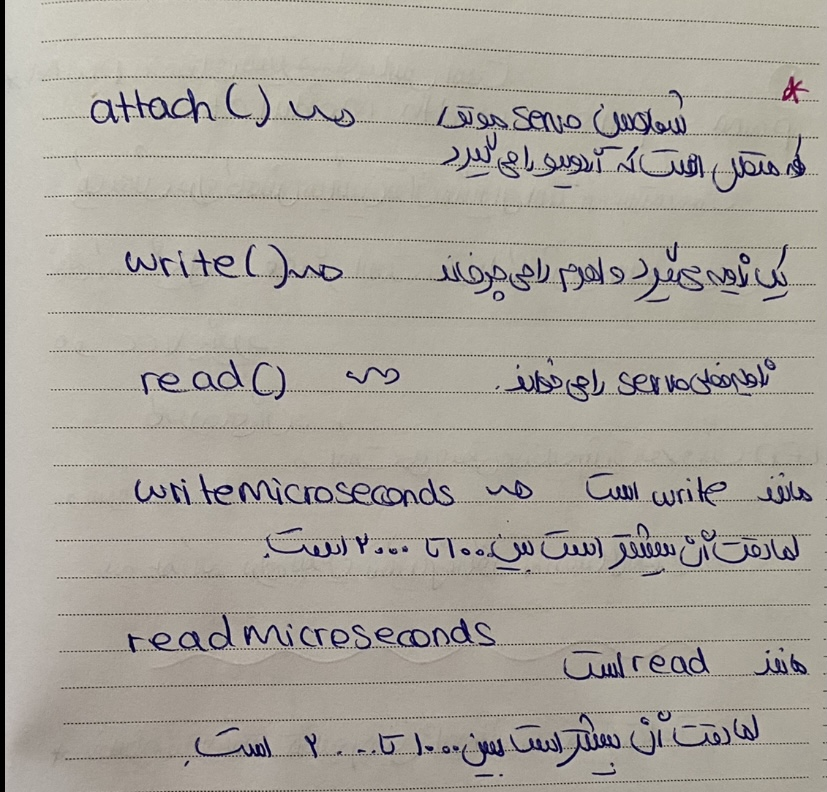 *
attach() شماره پین servo موتور
که متصل است که آردوینو را می گیرد
write() یک زاویه می گیرد و اهرم را می چرخاند
read() زاویه فعلی servo را می خواند.
writemicroseconds مانند write است
اما دقت آن بیشتر است بین ۱۰۰۰ تا ۲۰۰۰ است.
readmicroseconds
مانند read است
اما دقت آن بیشتر است بین ۱۰۰۰ تا ۲۰۰۰ است.